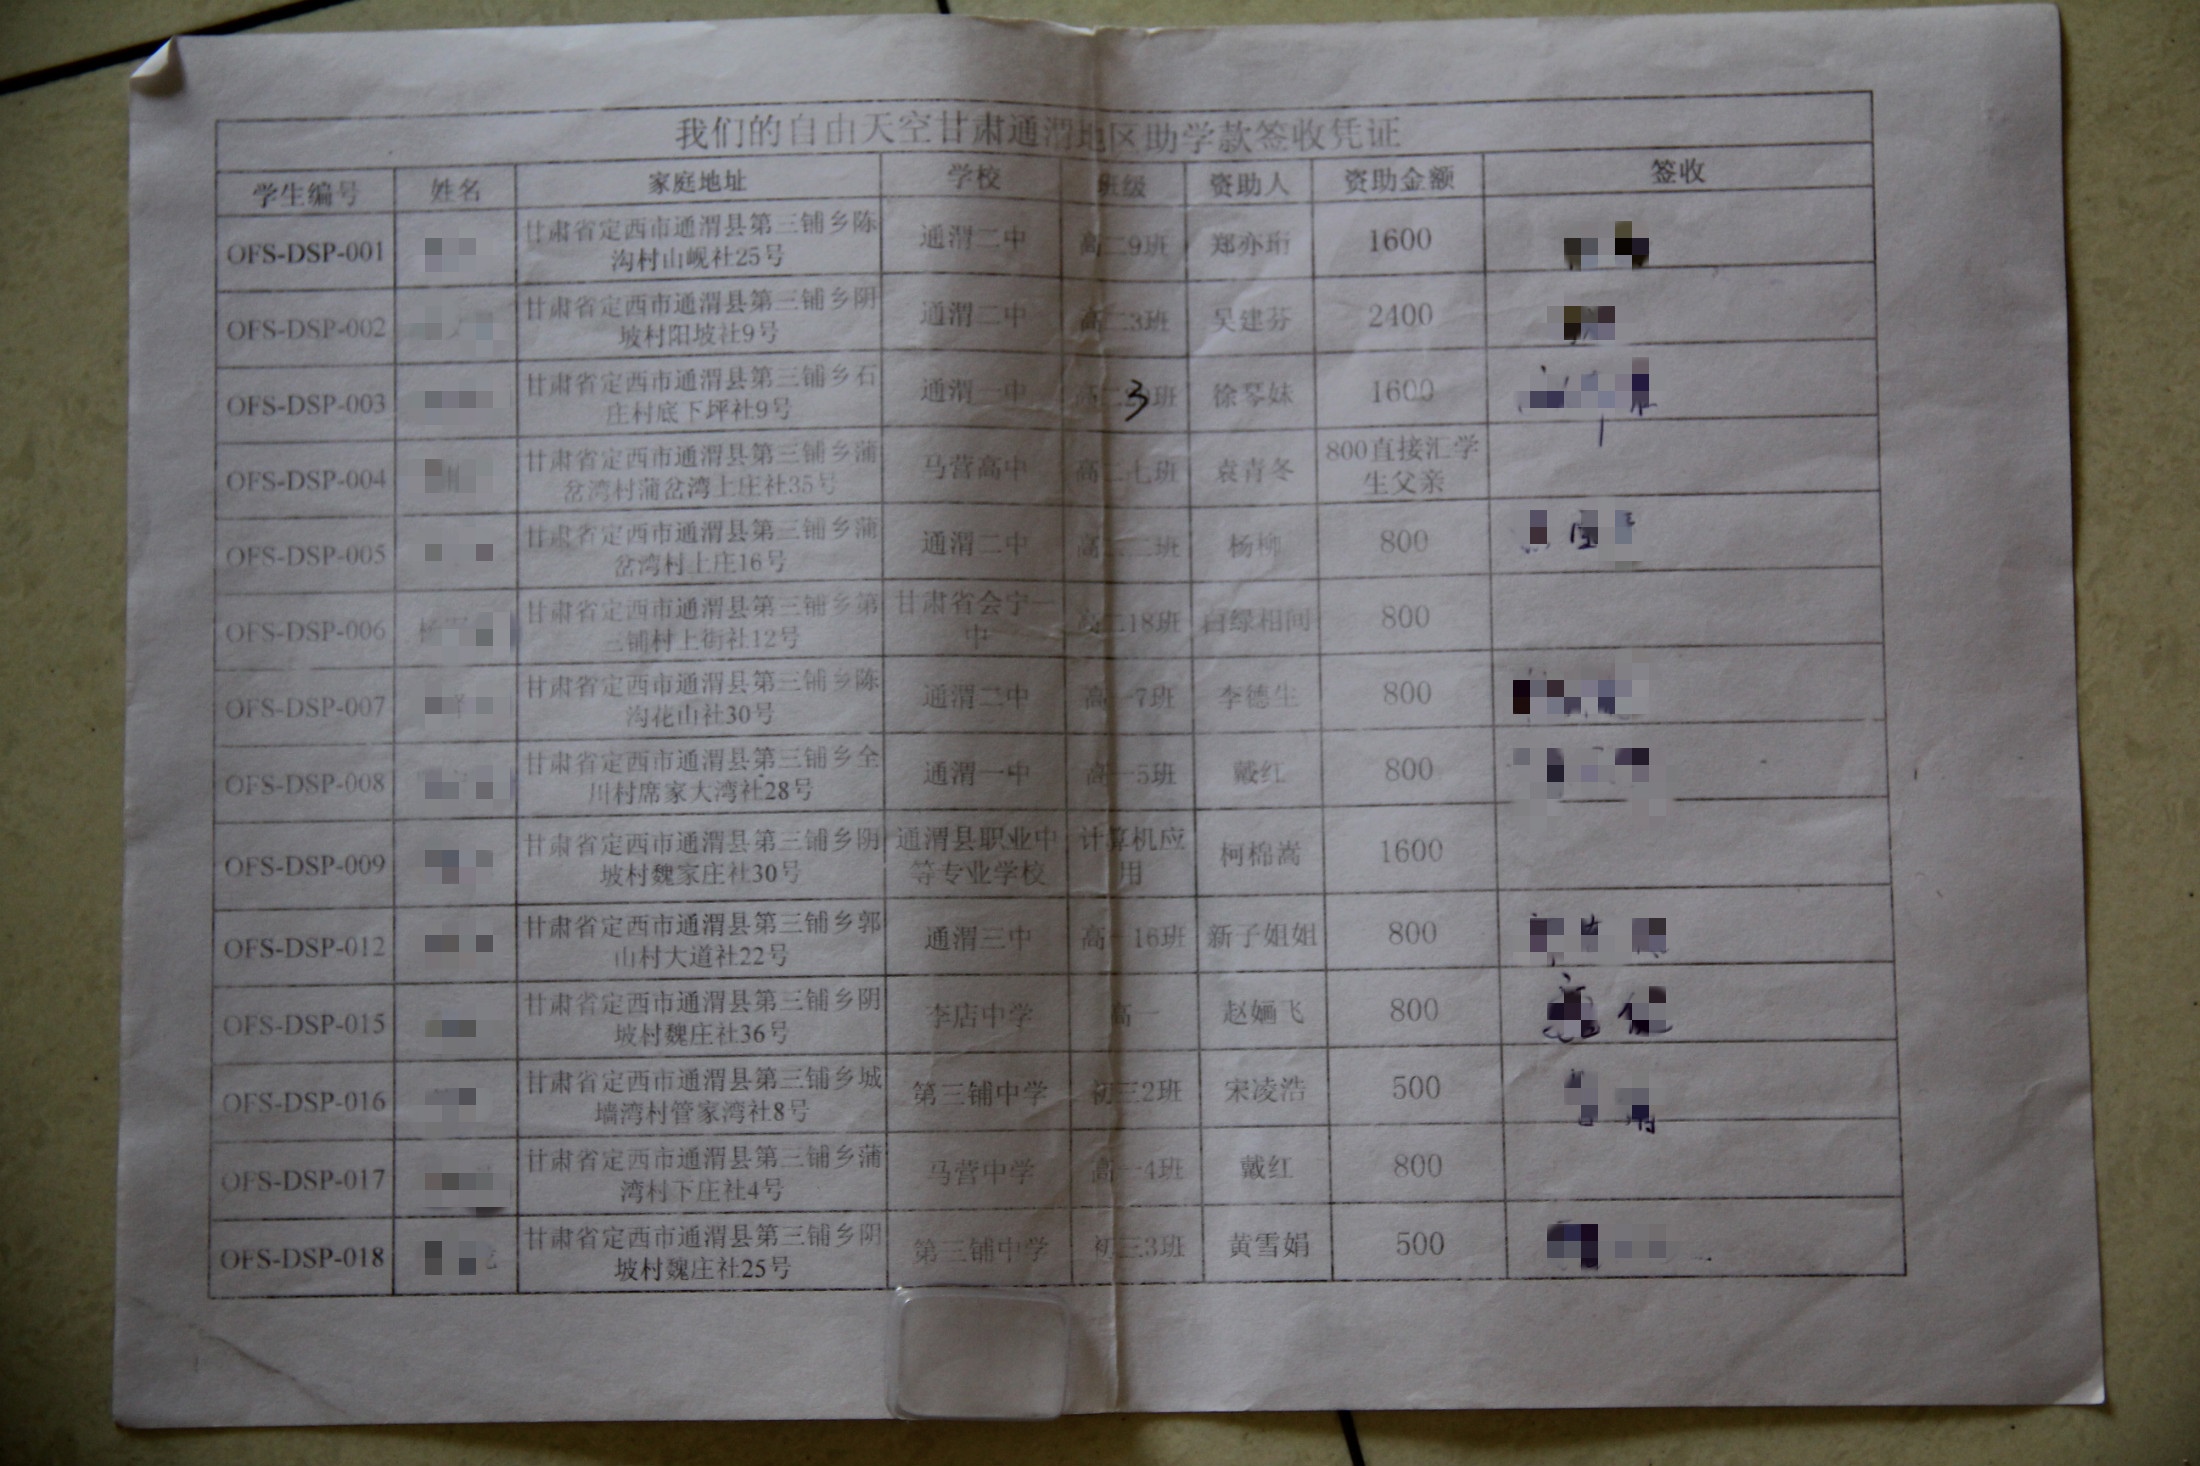 我们的自由天空甘肃通渭地区助学款签收凭证
学生编号 姓名 家庭地址 学校 班级 资助人 资助金额 签收
OFS-DSP-001 甘肃省定西市通渭县第三铺乡陈 通渭二中 高二9班 郑亦珩 1600
沟村山岘社25号
OFS-DSP-002 甘肃省定西市通渭县第三铺乡阴 通渭二中 高二3班 吴建芬 2400
坡村阳坡社9号
OFS-DSP-003 甘肃省定西市通渭县第三铺乡石 通渭一中 高二3班 徐琴妹 1600
庄村底下坪社9号
OFS-DSP-004 甘肃省定西市通渭县第三铺乡蒲 马营高中 高二七班 袁青冬 800直接汇学
岔湾村蒲岔湾上庄社35号 生父亲
OFS-DSP-005 甘肃省定西市通渭县第三铺乡蒲 通渭二中 高二二班 杨柳 800
岔湾村上庄16号
OFS-DSP-006 甘肃省定西市通渭县第三铺乡第 甘肃省会宁一 高二18班 白绿相间 800
三铺村上街社12号 中
OFS-DSP-007 甘肃省定西市通渭县第三铺乡陈 通渭二中 高一7班 李德生 800
沟花山社30号
OFS-DSP-008 甘肃省定西市通渭县第三铺乡全 通渭一中 高一5班 戴红 800
川村席家大湾社28号
OFS-DSP-009 甘肃省定西市通渭县第三铺乡阴 通渭县职业中 计算机应 柯棉嵩 1600
坡村魏家庄社30号 等专业学校 用
OFS-DSP-012 甘肃省定西市通渭县第三铺乡郭 通渭三中 高一16班 新子姐姐 800
山村大道社22号
OFS-DSP-015 甘肃省定西市通渭县第三铺乡阴 李店中学 高一 赵婳飞 800
坡村魏庄社36号
OFS-DSP-016 甘肃省定西市通渭县第三铺乡城 第三铺中学 初三2班 宋凌浩 500
墙湾村管家湾社8号
OFS-DSP-017 甘肃省定西市通渭县第三铺乡蒲 马营中学 高一4班 戴红 800
湾村下庄社4号
OFS-DSP-018 甘肃省定西市通渭县第三铺乡阴 第三铺中学 初三3班 黄雪娟 500
坡村魏庄社25号